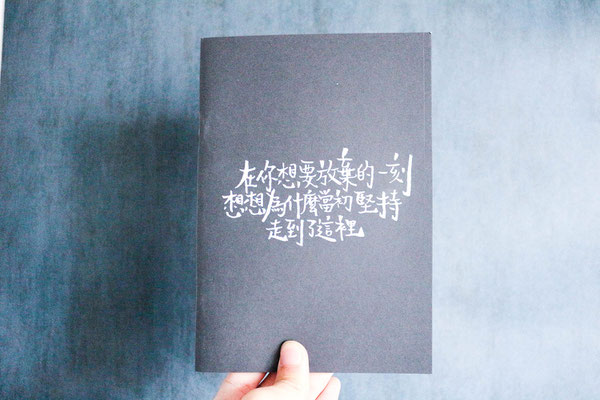 在你想要放棄的一刻
想想為什麼當初堅持
走到了這裡